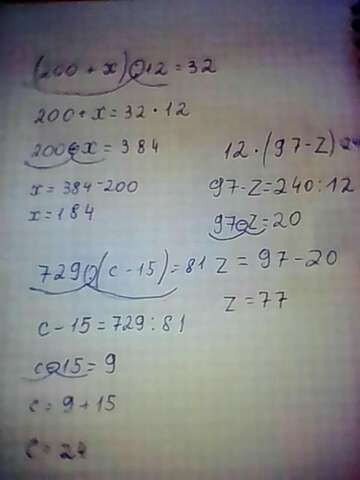 (200 + x) : 12 = 32
200 + x = 32 · 12
200 + x = 384
x = 384 - 200
x = 184
729 : (c - 15) = 81
c - 15 = 729 : 81
c - 15 = 9
c = 9 + 15
c = 24
12 · (97 - z)
97 - z = 240 : 12
97 - z = 20
z = 97 - 20
z = 77